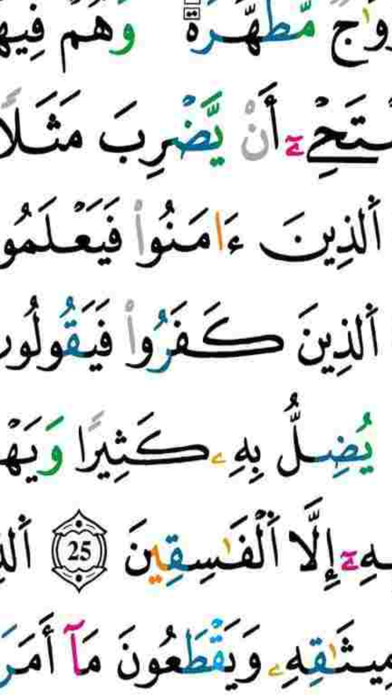 وَٰجٞ مُّطَهَّرَةٞۖ وَهُمْ فِيهَ
سْتَحْيِۦٓ أَنْ يَّضْرِبَ مَثَلًا
اَ۬لذِينَ ءَامَنُواْ فَيَعْلَمُو
اَ۬لذِينَ كَفَرُواْ فَيَقُولُو
يُضِلُّ بِهِۦ كَثِيرًا وَيَهْ
ـهِۦٓ إِلَّا اَ۬لْفَٰسِقِينَ 25 اَ۬لذ
مِيثَٰقِهِۦ وَيَقْطَعُونَ مَآ أَمَرَ